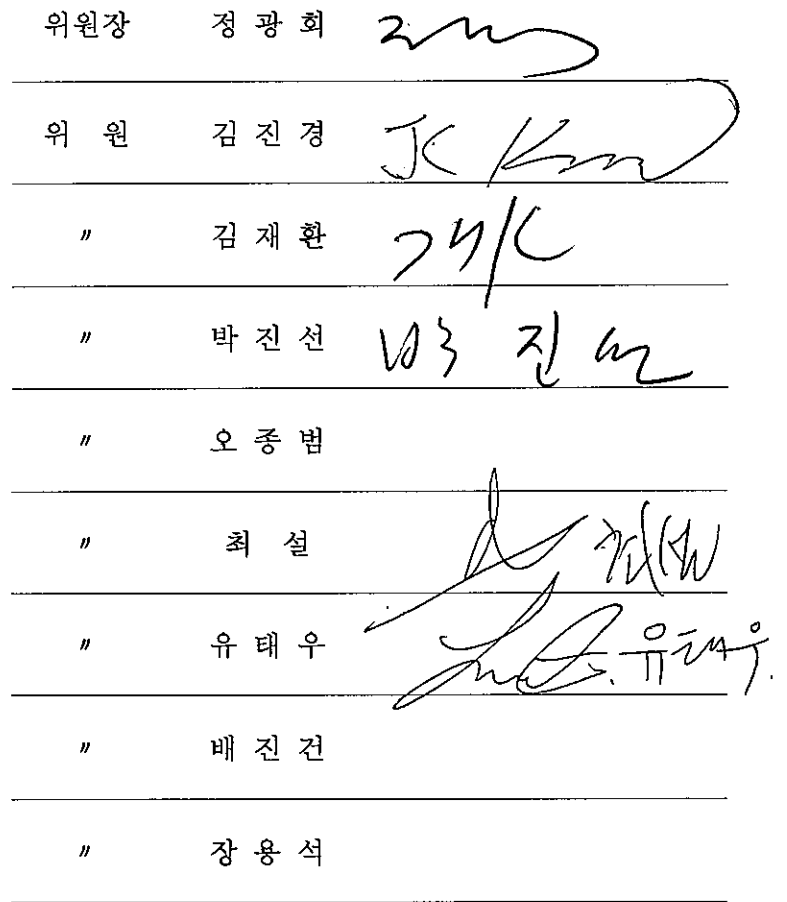 위원장 정 광 회
위 원 김 진 경 JK Kim
〃 김 재 환
〃 박 진 선 박 진 선
〃 오 종 범
〃 최 설
〃 유 태 우 유태우.
〃 배 진 건
〃 장 용 석